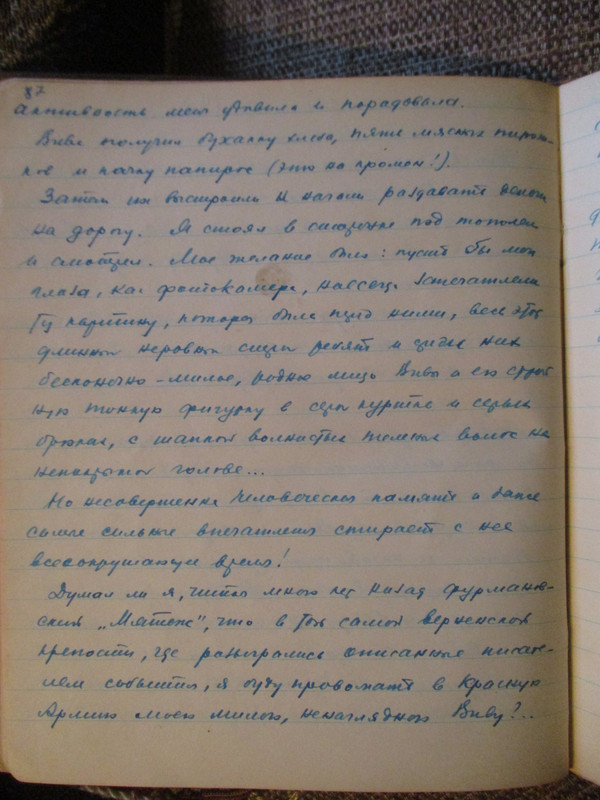 87
активность меня удивила и порадовала.
Вива получил буханку хлеба, пять мясных пирож-
ков и пачку папирос (это на промен!).
Затем их выстроили и начали раздавать деньги
на дорогу. Я стоял в сторонке под тополем
и смотрел. Мое желание было: пусть бы мои
глаза, как фотокамера, навсегда запечатлели
ту картину, которая была перед ними, весь этот
длинный неровный строй ребят и среди них
бесконечно-милое, родное лицо Вивы и его строй
ную тонкую фигурку в серой куртке и серых
брюках, с шапкой волнистых темных волос на
непокрытой голове...
Но несовершенна человеческая память и даже
самые сильные впечатления стирает с нее
всесокрушающее время!
Думал ли я, читая много лет назад фурманов-
ский „Мятеж", что в той самой верненской
крепости, где разыгрались описанные писате-
лем события, я буду провожать в Красную
Армию моего милого, ненаглядного Виву?..